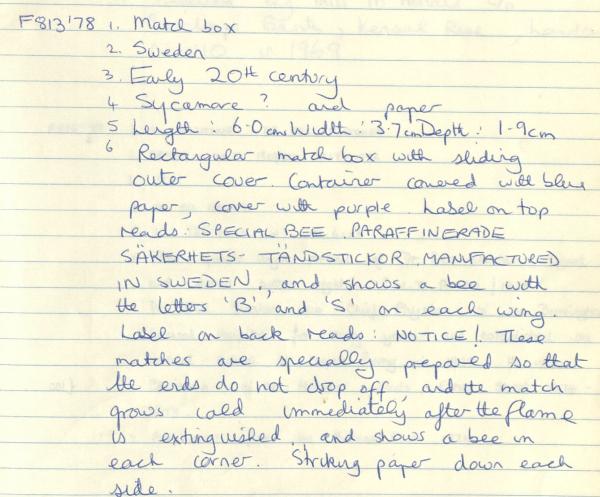 F813'78 1. Match box
2. Sweden
3. Early 20th century
4 Sycamore ? and paper
5 Length : 6.0cm Width : 3.7cm Depth : 1.9cm
6 Rectangular match box with sliding
outer cover. Container covered with blue
paper, cover with purple. Label on top
reads: SPECIAL BEE. PARAFFINERADE
SÄKERHETS- TÄNDSTICKOR. MANUFACTURED
IN SWEDEN., and shows a bee with
the letters 'B' and 'S' on each wing.
Label on back reads: NOTICE! These
matches are specially prepared so that
the ends do not drop off, and the match
grows cold immediately after the flame
is extinguished, and shows a bee in
each corner. Striking paper down each
side.